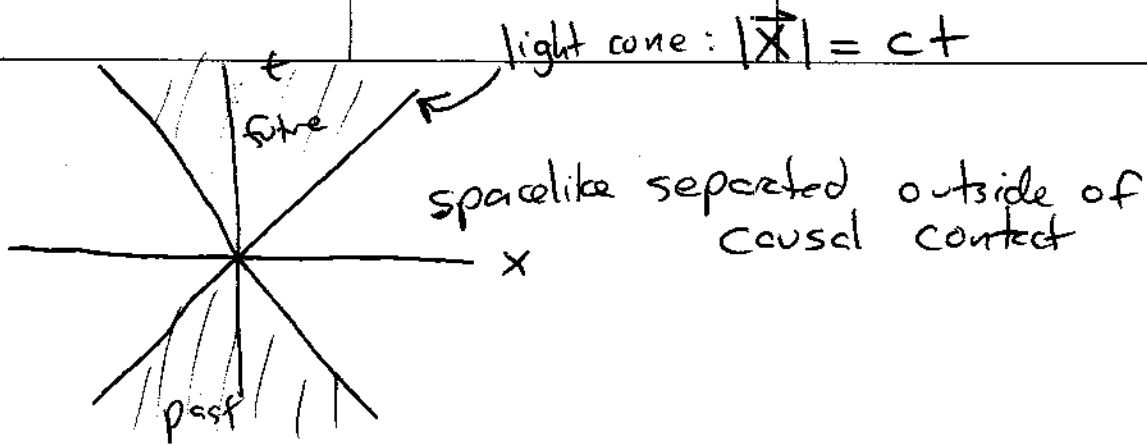 light cone: |x⃗| = ct
t
future
spacelike separated outside of
causal contact
x
past